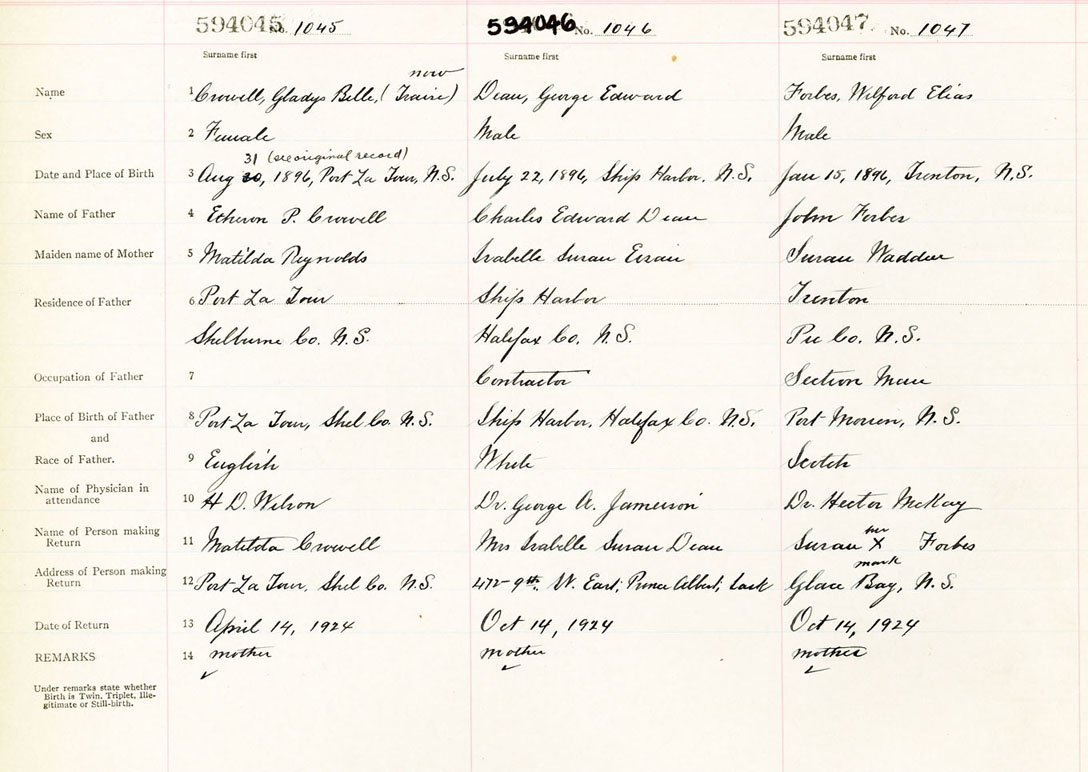 594045 No. 1045
594046 No. 1046
594047 No. 1047
Surname first
Surname first
Surname first
now
Name 1 Crowell, Gladys Belle, ( ) Dean, George Edward Forbes, Wilford Elias
Sex 2 Female Male Male
31 (see original record)
Date and Place of Birth 3 Aug 30, 1896, Port La Tour, N.S. July 22, 1896, Ship Harbor, N.S. Jan 15, 1896, Trenton, N.S.
Name of Father 4 P. Crowell Charles Edward Dean John Forbes
Maiden name of Mother 5 Matilda Reynolds Isabelle Susan Susan
Residence of Father 6 Port La Tour Ship Harbor Trenton
Shelburne Co. N.S. Halifax Co. N.S. Co. N.S.
Occupation of Father 7 Contractor Section Man
Place of Birth of Father 8 Port La Tour, Shel Co. N.S. Ship Harbor, Halifax Co. N.S. Port Morien, N.S.
and
Race of Father. 9 English White Scotch
Name of Physician in
attendance 10 H D. Wilson Dr. George A. Jamerson Dr. Hector McKay
Name of Person making
Return 11 Matilda Crowell Mrs Isabelle Susan Dean Susan her X mark Forbes
Address of Person making
Return 12 Port La Tour, Shel Co. N.S. 9th. St. East, Prince Albert, Sask Glace Bay, N.S.
Date of Return 13 April 14, 1924 Oct 14, 1924 Oct 14, 1924
REMARKS 14 mother mother mother
Under remarks state whether
Birth is Twin, Triplet, Ille-
gitimate or Still-birth.